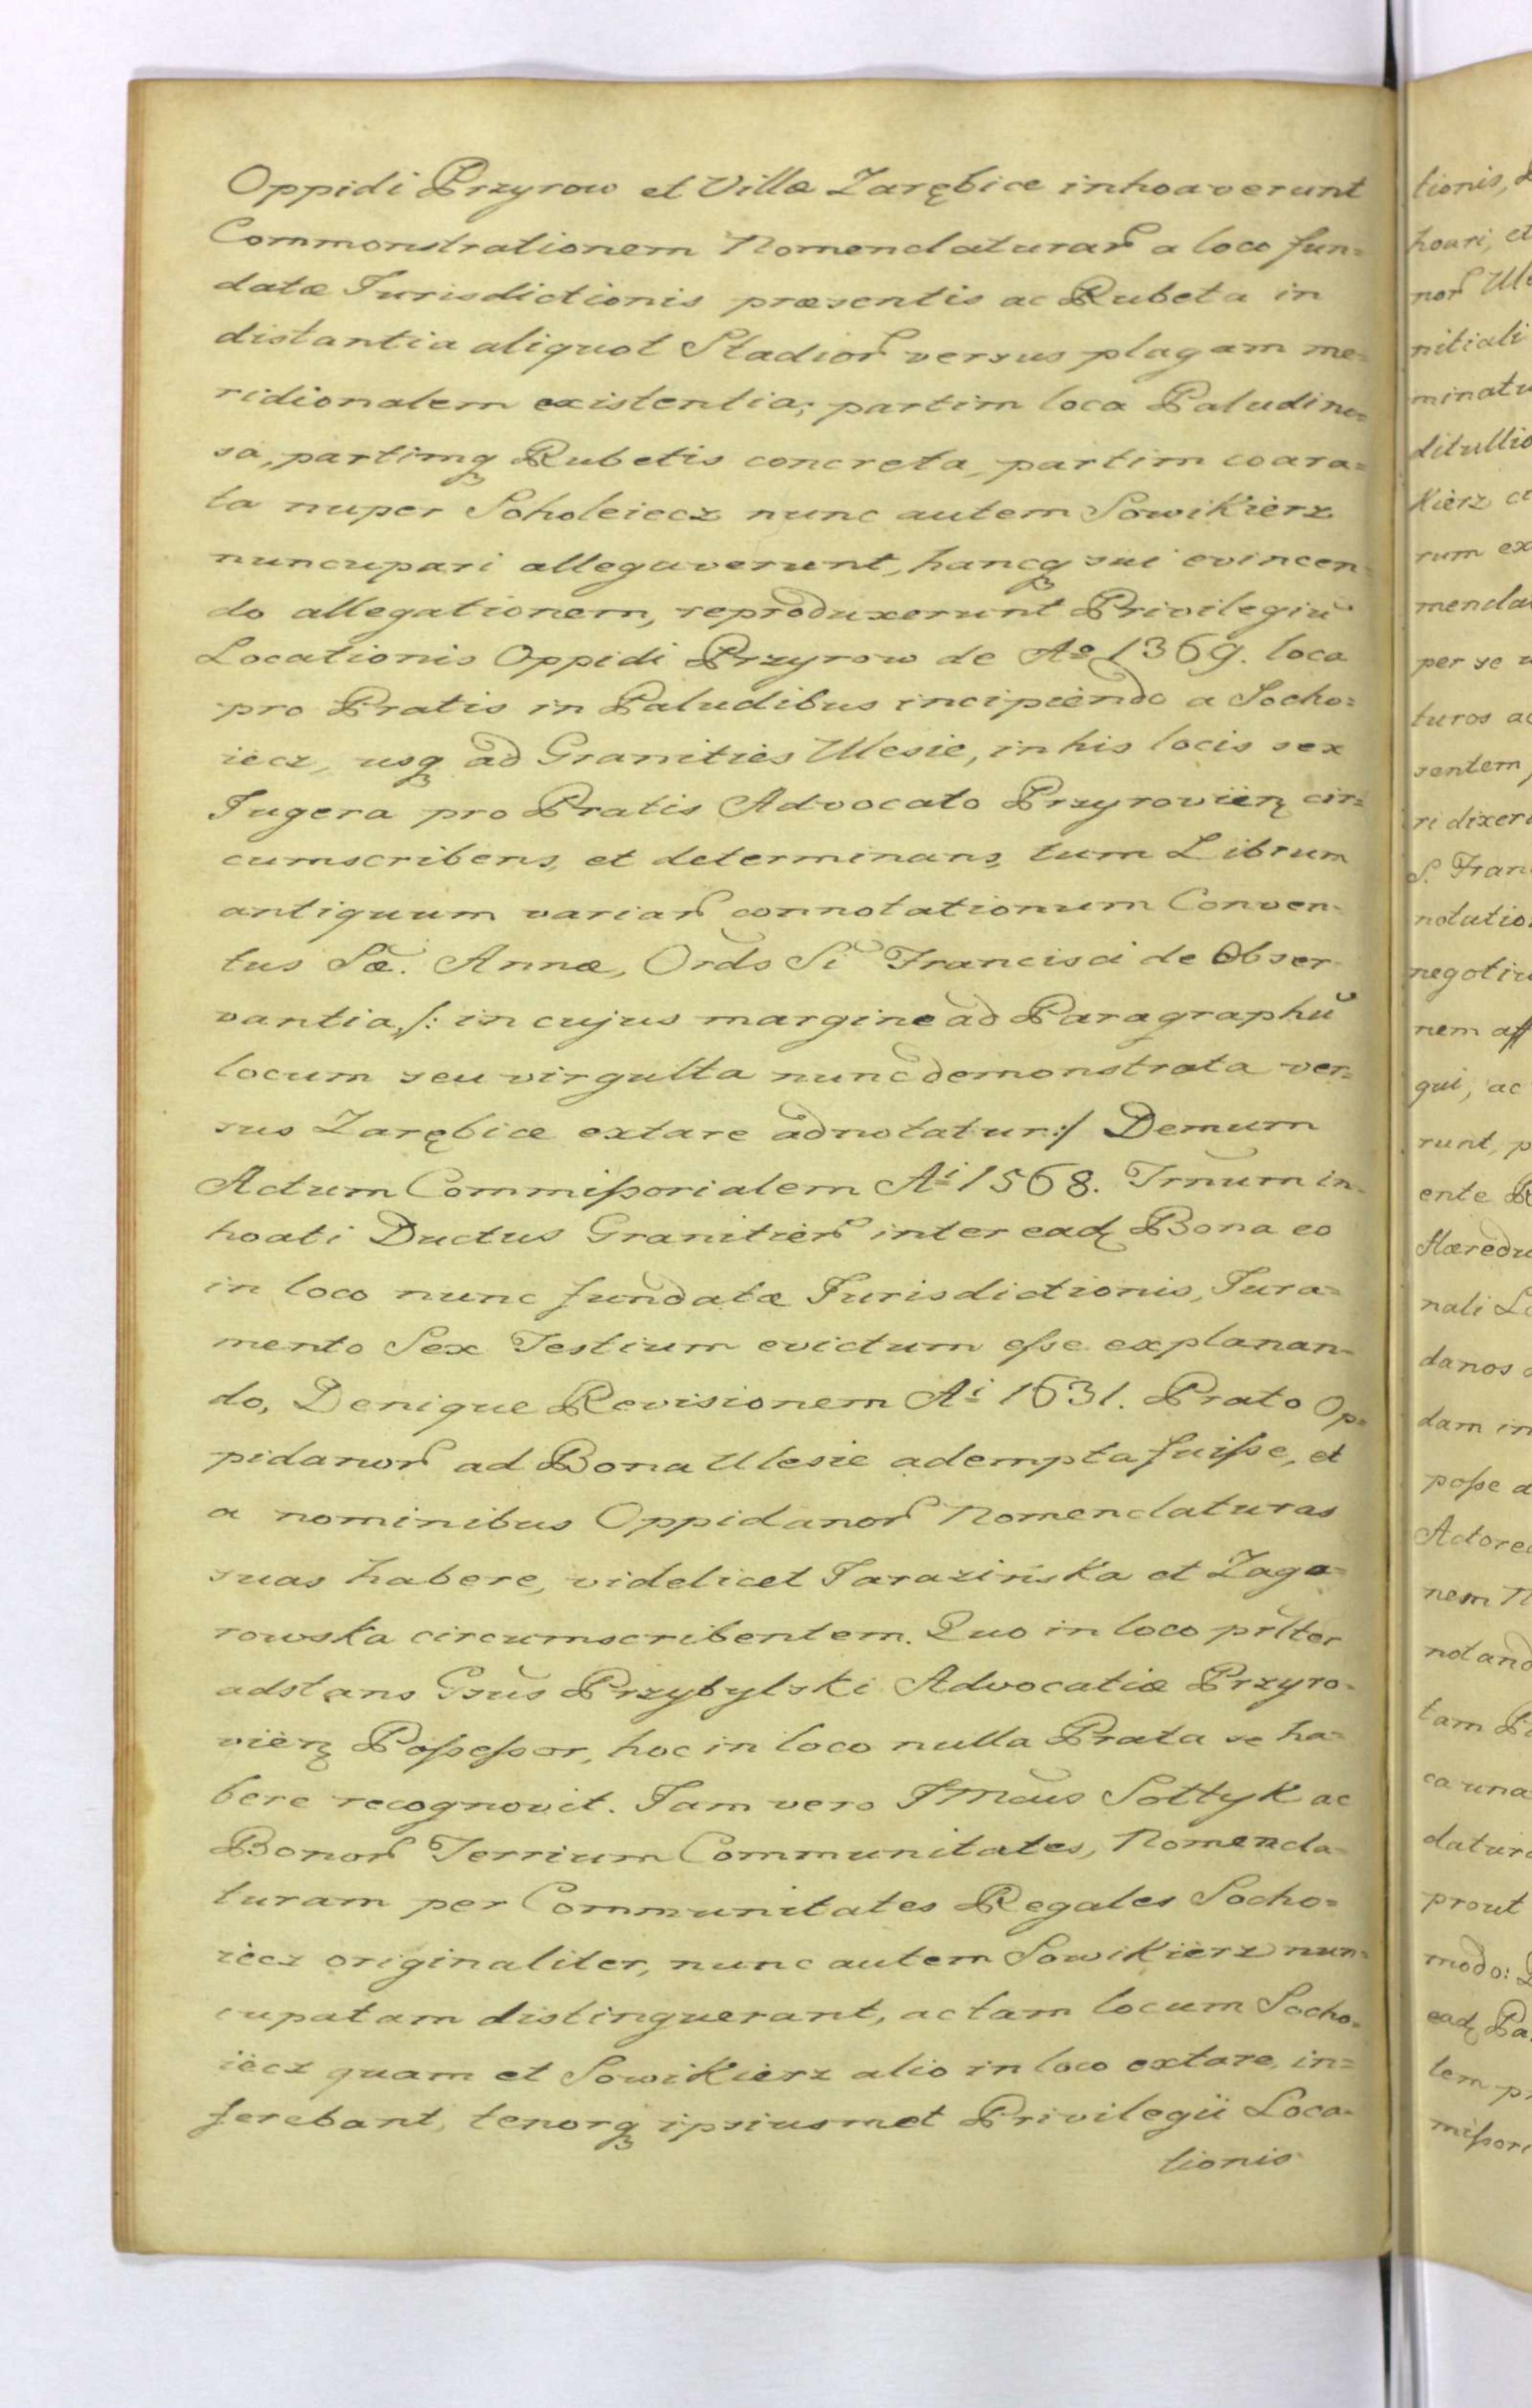 Oppidi Przyrow et Villæ Zarębice inhoaverunt
Commonstrationem Nomenclaturarꝝ a loco fun=
datæ Jurisdictionis præsentis ac Rubeta in
distantia aliquot Stadiorꝝ versus plagam me=
ridionalem existentia; partim loca Paludino=
sa, partimqꝫ Rubetis concreta, partim coara=
ta nuper Soholeiecz nunc autem SowiKierz
nuncupari allegaverunt, hancqꝫ sui evincen=
do allegationem, reproduxerunt Privilegiũ
Locationis Oppidi Przyrow de Aº 1369. loca
pro Pratis in Paludibus incipiendo a Socho=
iecz, usqꝫ ad Granities Ulesie, in his locis sex
Jugera pro Pratis Advocato Przyrovień cir=
cumscribens, et determinans, tum Librum
antiquum variarꝝ connotationum Conven=
tus Sæ. Annæ, Ordis Si Francisci de Obser=
vantia, /: in cujus margine ad Paragraphũ
locum seu virgulta nunc demonstrata ver=
sus Zarębice extare adnotatur :/ Demum
Actum Commissorialem Ai 1568. Trnum in=
hoati Ductus Granitierꝝ inter eadꝫ Bona eo
in loco nunc fundatæ Jurisdictionis, Jura=
mento Sex Testium evictum esse explanan=
do, Denique Revisionem Ai 1631. Prato Op=
pidanorꝝ ad Bona Ulesie adempta fuisse, et
a nominibus Oppidanorꝝ Nomenclaturas
suas habere, videlicet Tarazińska et Zaga=
rowska circumscribentem. Quo in loco prlter
adstans Gsus Przybylski Advocatiæ Przyro=
vień Possessor, hoc in loco nulla Prata se ha=
bere recognovit. Jam vero Jmcus Sołtyk ac
Bonorꝝ Terrium Communitates, Nomencla=
turam per Communitates Regales Socho=
iecz originaliter, nunc autem SowiKierz nun=
cupatam distinguerant, ac tam locum Socho=
iecz quam et SowiKierz alio in loco extare, in=
ferebant, tenorqꝫ ipsiusmet Privilegii Loca=
tionis
tionis,
hoari, et
norꝝ Ule
nitiali
minatu
ditullio
Kierz
rum ex
mencla
per se
turos ac
sentem,
ri dixer
S. Fran
notatio
negotiu
nem aff
qui, ac
runt, p
ente
Hæredu
nali
danos
dam in
posse
Actore
nem N
notand
tam
ca una
datur
prout
modo:
eadꝫ Pa
lem p
missor